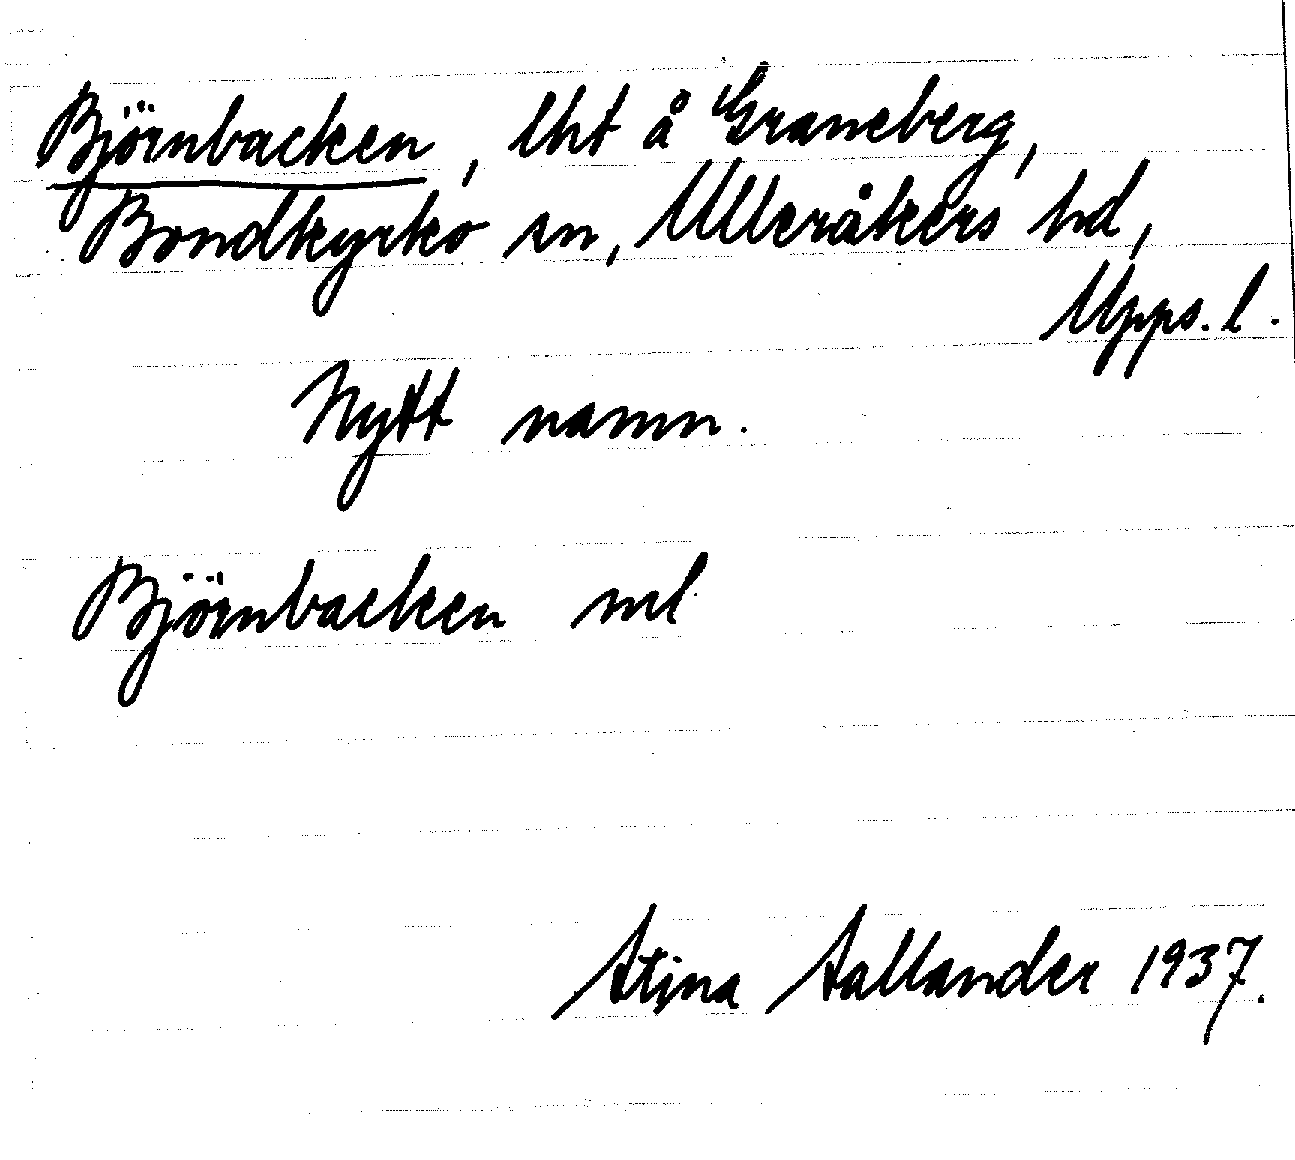 Björnbacken, lht å Graneberg,
Bondkyrko sn, Ulleråkers hd,
Upps. l.
Nytt namn.
Björnbacken ml
Stina Sallander 1937.